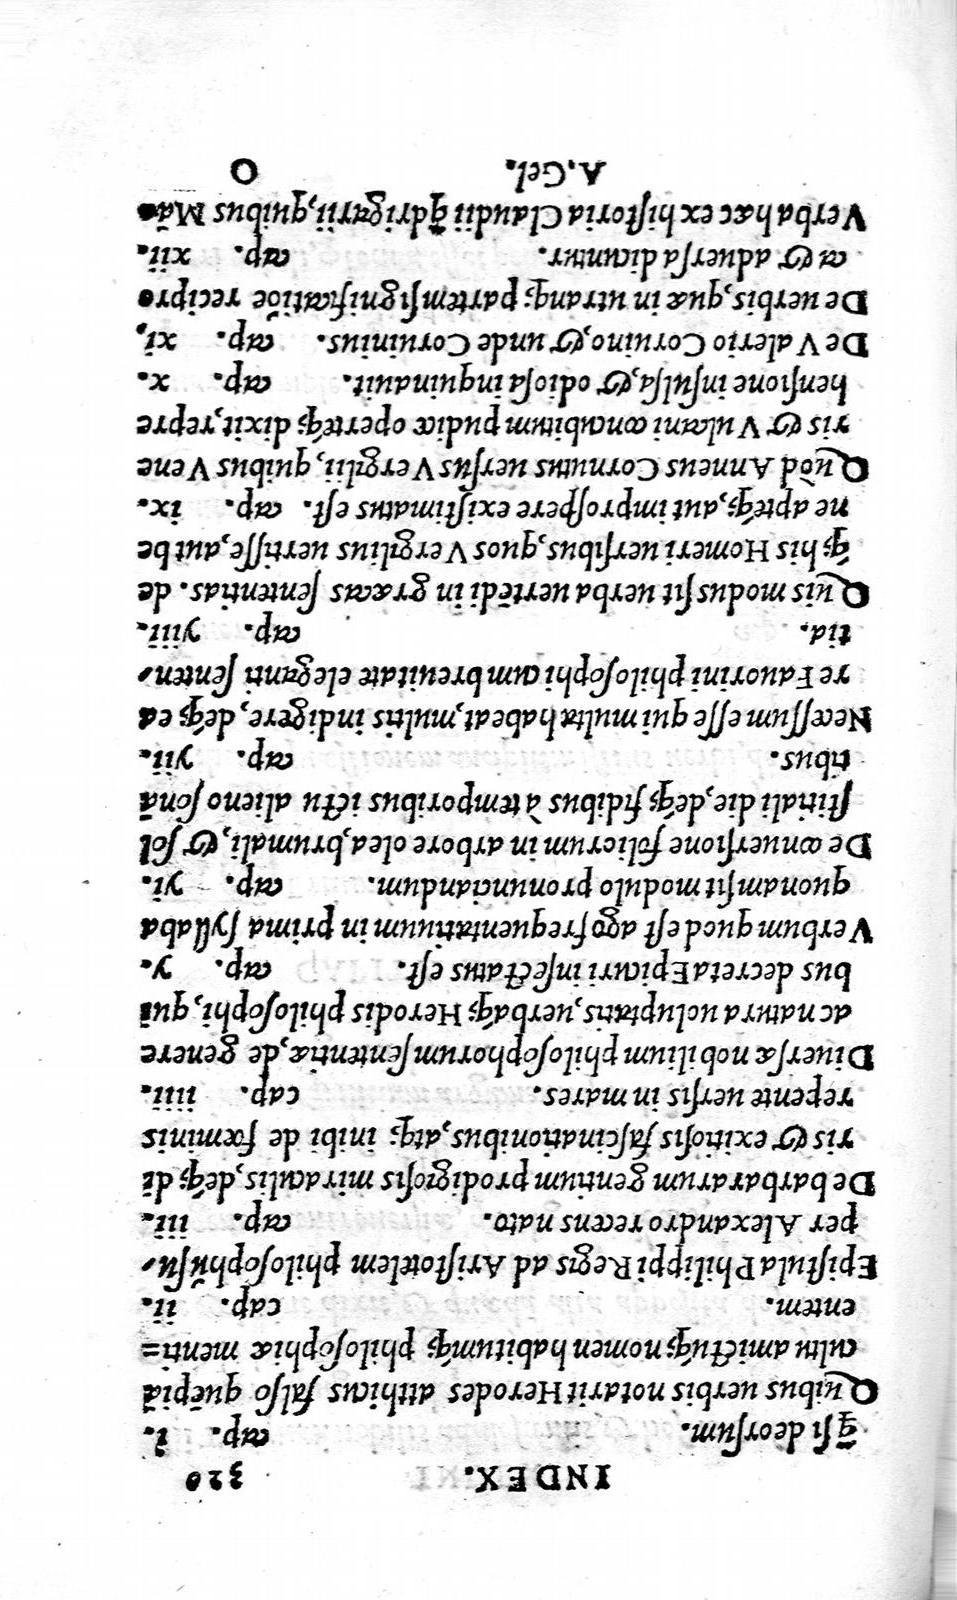 INDEX. 320
q̃ si deorsum. cap. i.
Quibus uerbis notarit Herodes atthicus falso quēpiā
cultu amictuq́; nomen habitumq́; philosophiæ menti=
entem. cap. ii.
Epistula Philippi Regis ad Aristotelem philosophũ su/
per Alexandro recens nato. cap. iii.
De barbararum gentium prodigiosis miraculis, deq́; di
ris & exitiosis fascinationibus, atq; inibi de fœminis
repente uersis in mares. cap. iiii.
Diuersæ nobilium philosophorum sententiæ, de genere
ac natura uoluptatis, uerbaq́; Herodis philosophi, qui
bus decreta Epicuri insectatus est. cap. y.
Verbum quod est ago frequentatiuum in prima syllaba
quonam sit modulo pronunciandum. cap. yi.
De conuersione foliorum in arbore olea, brumali, & sol
stitiali die, deq́; fidibus à temporibus ictu alieno sonā
tibus. cap. yii.
Necessum esse qui multa habeat, multis indigere, deq́; ea
re Fauorini philosophi cum breuitate eleganti senten/
tia. cap. yiii.
Quis modus sit uerba uertēdi in græcas sententias. de
q́; his Homeri uersibus, quos Vergilius uertisse, aut be
ne apteq́;, aut improspere existimatus est. cap. ix.
Quòd Anneus Cornutus uersus Vergilii, quibus Vene
ris & Vulcani concubitum pudice operteq́; dixit, repre
hensione insulsa, & odiosa inquinauit. cap. x.
De Valerio Coruino, & unde Coruinius. cap. xi.
De uerbis, quæ in utranq; partem significatiōe recipro
ca & aduersa dicuntur. cap. xii.
Verba hæc ex historia Claudii q̃drigarii, quibus Mā
A. Gel. O